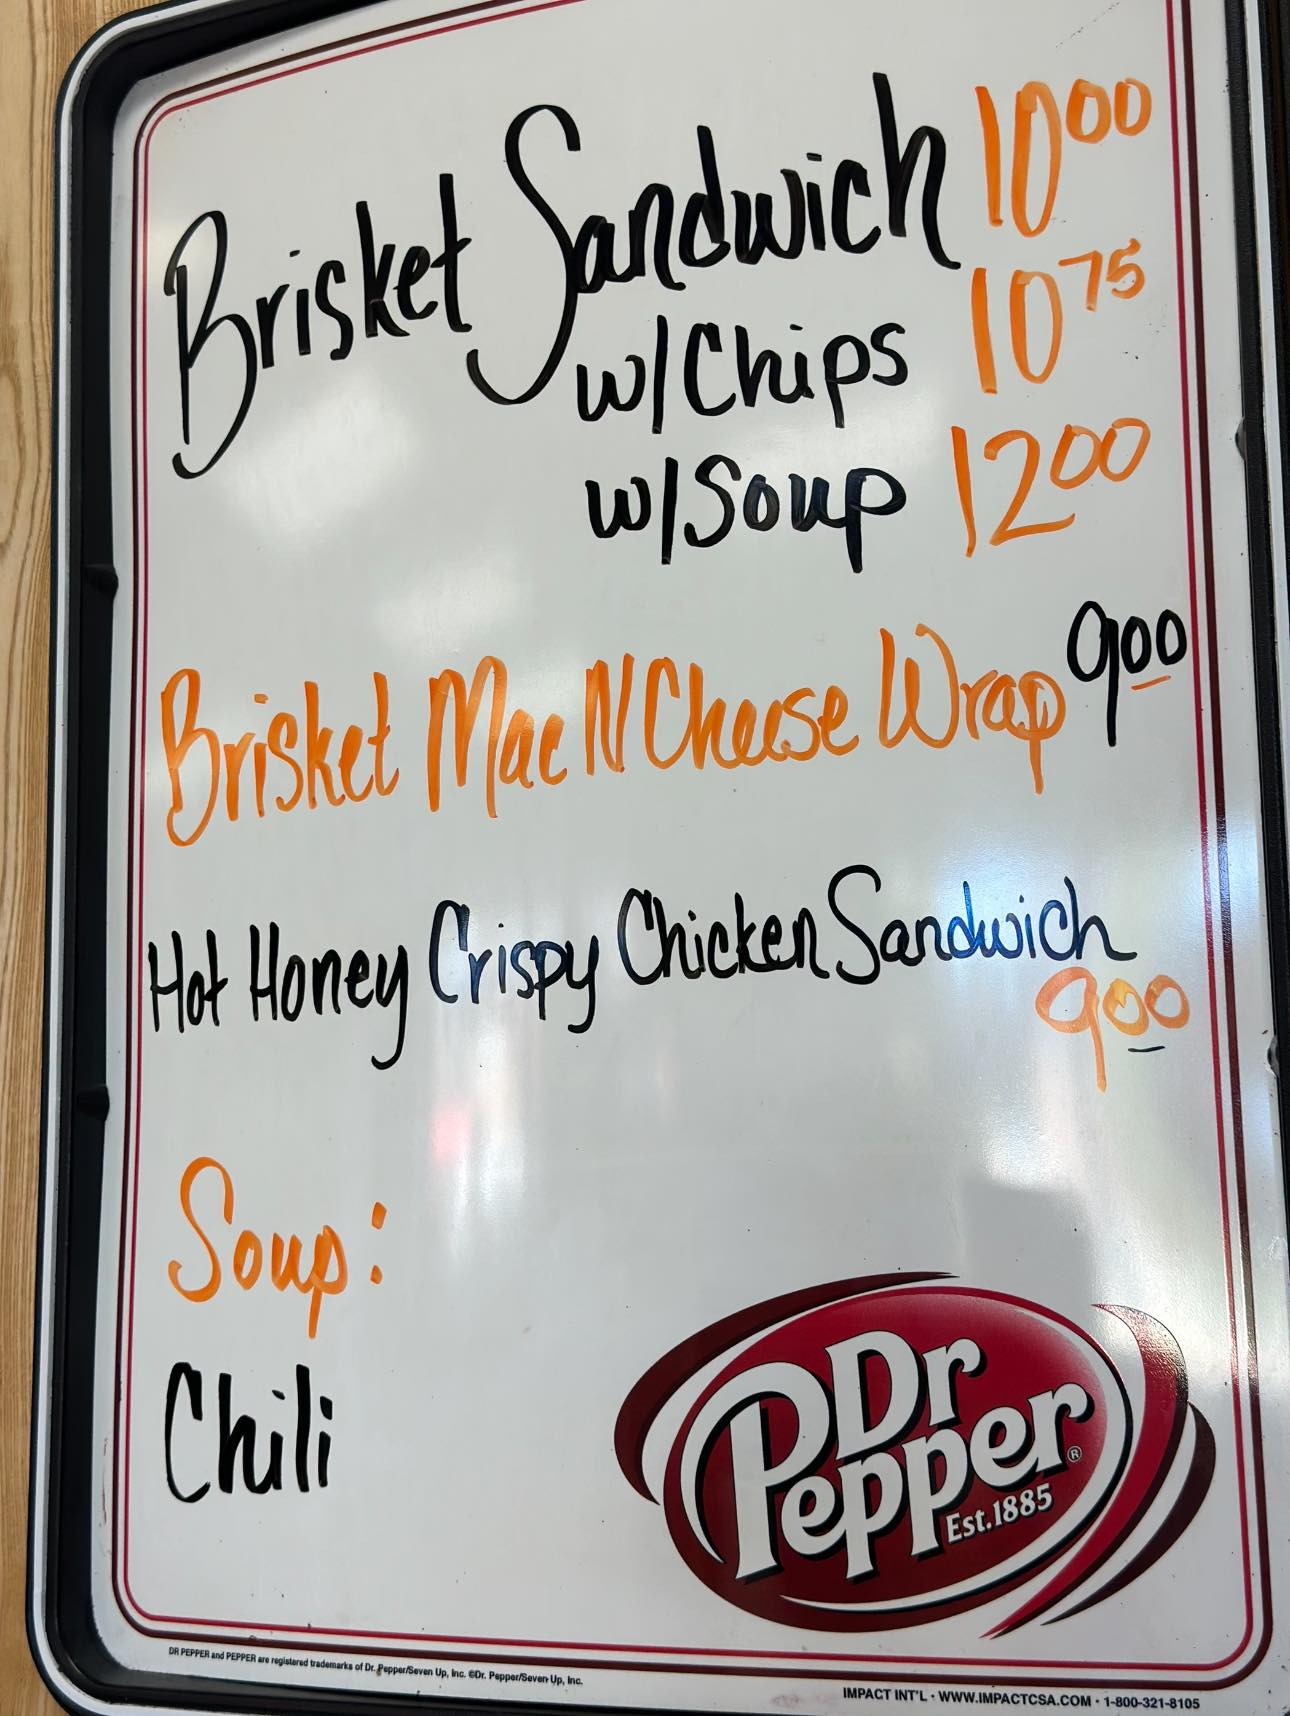 Brisket Sandwich 10.00
w/Chips 10.75
w/Soup 12.00
Brisket Mac N Cheese Wrap 9.00
Hot Honey Crispy Chicken Sandwich
9.00
Soup:
Chili
Dr
Pepper®
Est.1885
DR PEPPER and PEPPER are registered trademarks of Dr. Pepper/Seven Up, Inc. ©Dr. Pepper/Seven Up, Inc.
IMPACT INT'L • WWW.IMPACTCSA.COM • 1-800-321-8105